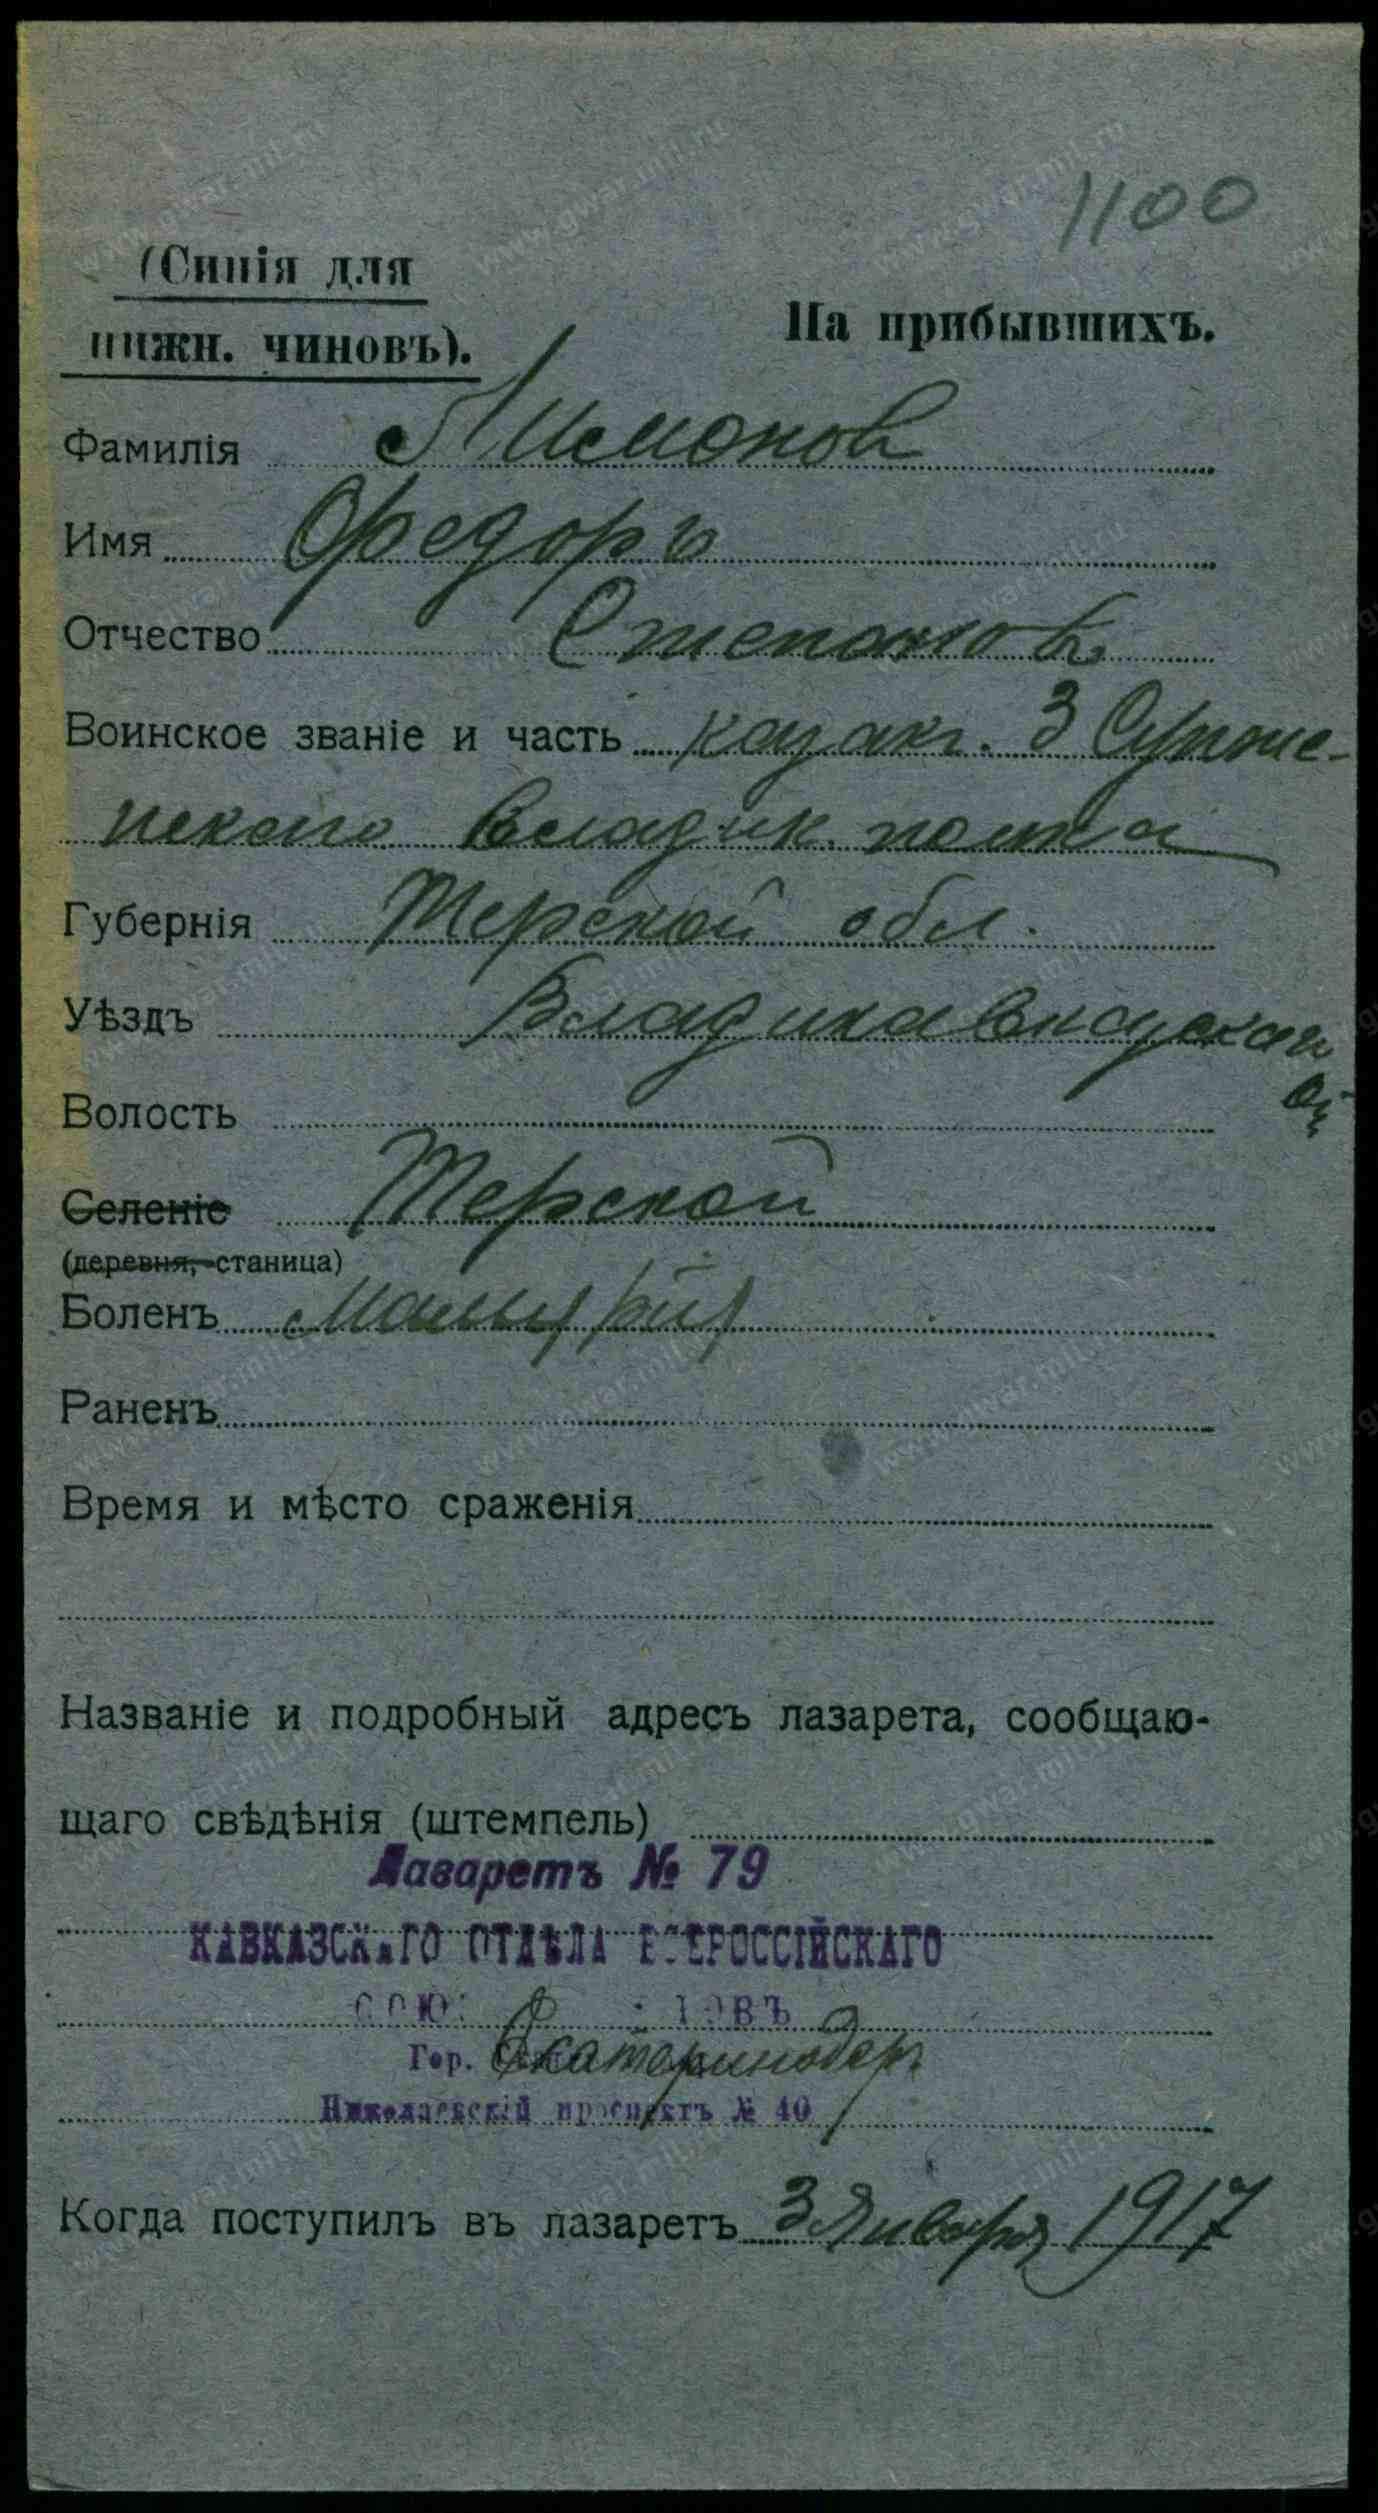 1100
(Синія для
нижн. чиновъ).
На прибывшихъ.
Фамилія Лимонов
Имя Федоръ
Отчество Степановъ
Воинское званіе и часть казакъ. 3 Сунже-
нскаго Владик. полка
Губернія Терской обл.
Уѣздъ Владикавказскаго
Волость
Селеніе Терской
(деревня, станица)
Боленъ
Раненъ
Время и мѣсто сраженія
Названіе и подробный адресъ лазарета, сообщаю-
щаго свѣдѣнія (штемпель)
Лазаретъ № 79
КАВКАЗСКАГО ОТДѢЛА ВСЕРОССІЙСКАГО
Гор. Екатеринодаръ
Николаевскій проспектъ № 40
Когда поступилъ въ лазаретъ 3 Января 1917
www.gwar.mil.ru